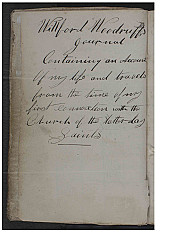 Willford Woodruff's
Journal
Containing an account
Of my life and travels
from the time of my
first connextion with the
Church of the Latter day
Saints